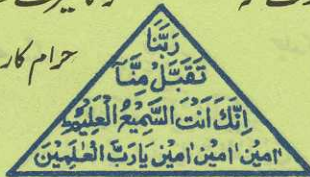 حرام کار
رَبَّنَا
تَقَبَّلْ مِنَّا
اِنَّكَ اَنْتَ السَّمِيْعُ الْعَلِيْمُ
اٰمِيْن اٰمِيْن اٰمِيْن يَارَبَّ الْعٰلَمِيْنَ